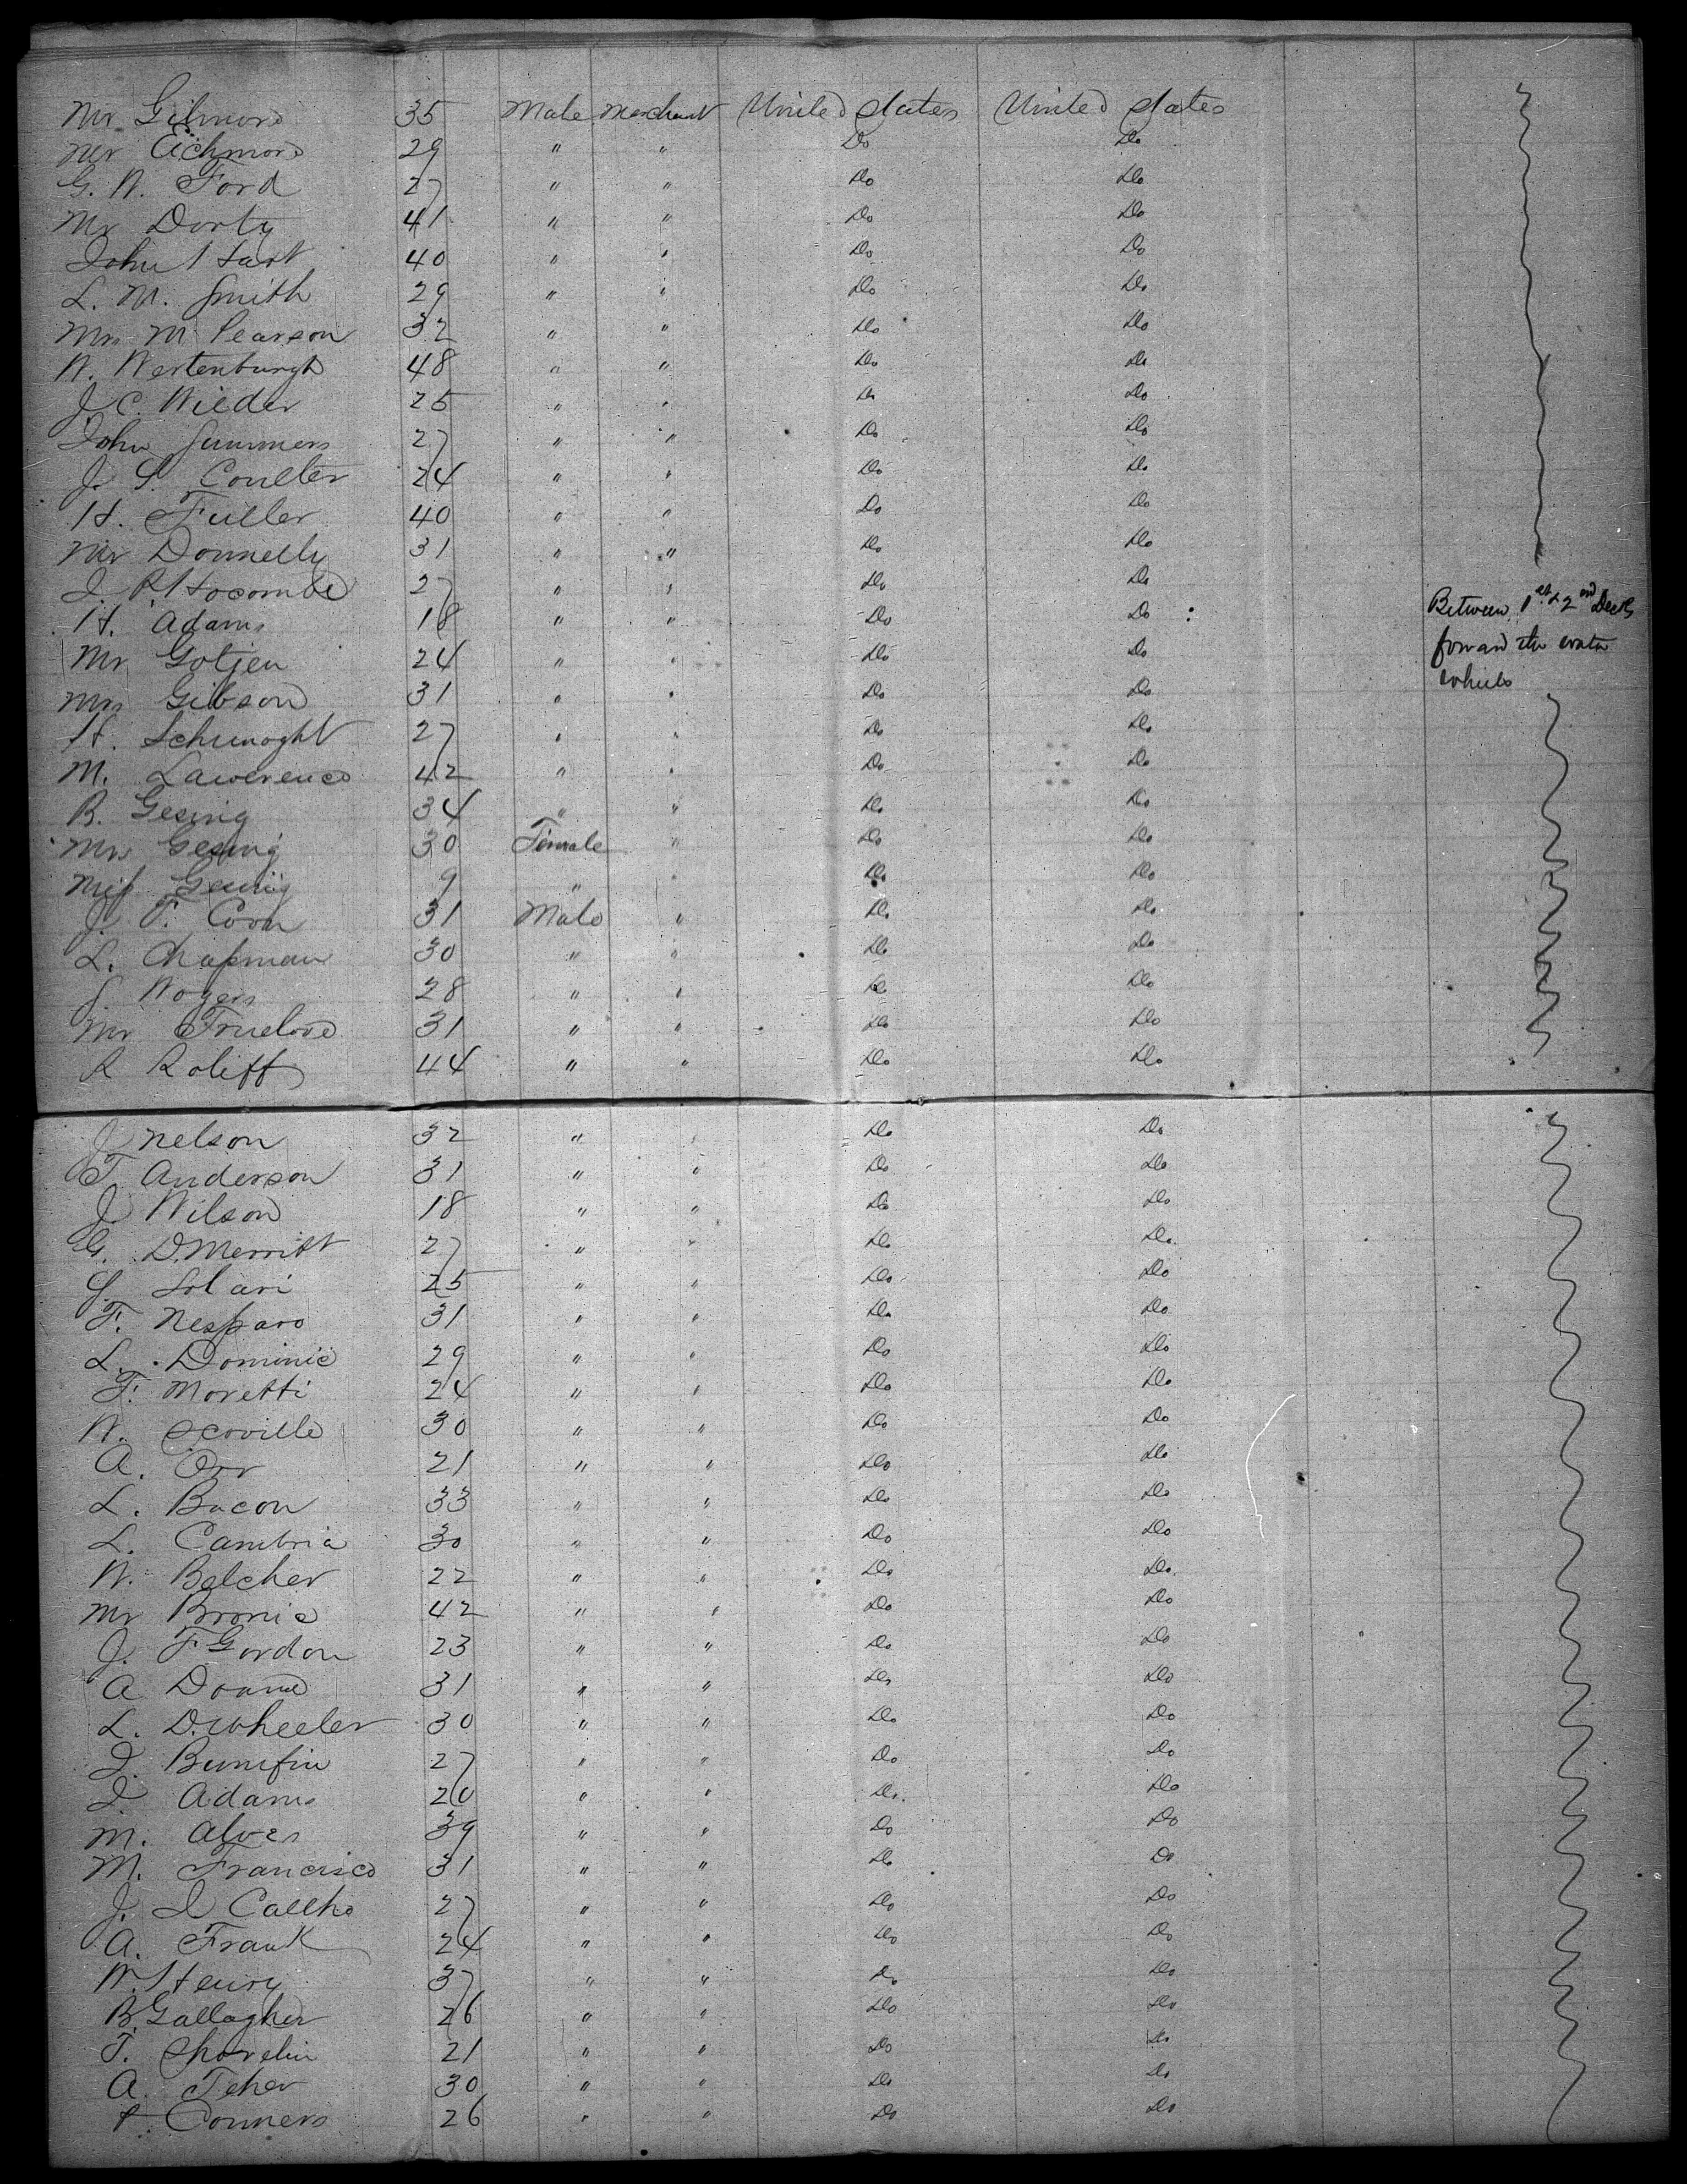 Mr Gilmore 35 Male Merchant United States United States
Mr Eichmore 29 " " Do Do
G. W. Ford 27 " " Do Do
Mr Dorty 41 " " Do Do
John Hart 40 " " Do Do
L. M. Smith 29 " " Do Do
Mrs M Pearson 32 " " Do Do
W. Wertenburgh 48 " " Do Do
J. C. Wilder 25 " " Do Do
John Summers 27 " " Do Do
J. S. Coulter 24 " " Do Do
H. Fuller 40 " " Do Do
Mr Donnelly 31 " " Do Do
J. R. Hocombe 27 " " Do Do
H. Adams 18 " " Do Do Between 1st & 2nd Decks
Mr Gotjen 24 " " Do Do forward the water
Mrs Gibson 31 " " Do Do wheels
H. 27 " " Do Do
M. Lawerence 42 " " Do Do
R. Gesing 34 " " Do Do
Mrs Gesing 30 Female " Do Do
Miss Gesing 9 " " Do Do
J. T. Coon 31 Male " Do Do
L. Chapman 30 " " Do Do
28 " " Do Do
Mr Truelove 31 " " Do Do
R Roliff 44 " " Do Do
J Nelson 32 " " Do Do
T Anderson 31 " " Do Do
J. Wilson 18 " " Do Do
G. D. Merritt 27 " " Do Do
G Solari 25 " " Do Do
F. Nesparo 31 " " Do Do
L. Dominic 29 " " Do Do
F. Moretti 24 " " Do Do
W. Scoville 30 " " Do Do
A. Orr 21 " " Do Do
L. Bacon 33 " " Do Do
L. Cambria 30 " " Do Do
W. Belcher 22 " " Do Do
Mr 42 " " Do Do
J. F Gordon 23 " " Do Do
A Doane 31 " " Do Do
L. D. Wheeler 30 " " Do Do
J. 27 " " Do Do
J. Adams 20 " " Do Do
M. Alves 39 " " Do Do
M. Francisco 31 " " Do Do
J. I Caelho 27 " " Do Do
A. Frank 24 " " Do Do
W. Henry 37 " " Do Do
B. Gallagher 26 " " Do Do
T. Shovelin 21 " " Do Do
A. Teher 30 " " Do Do
P. Conners 26 " " Do Do